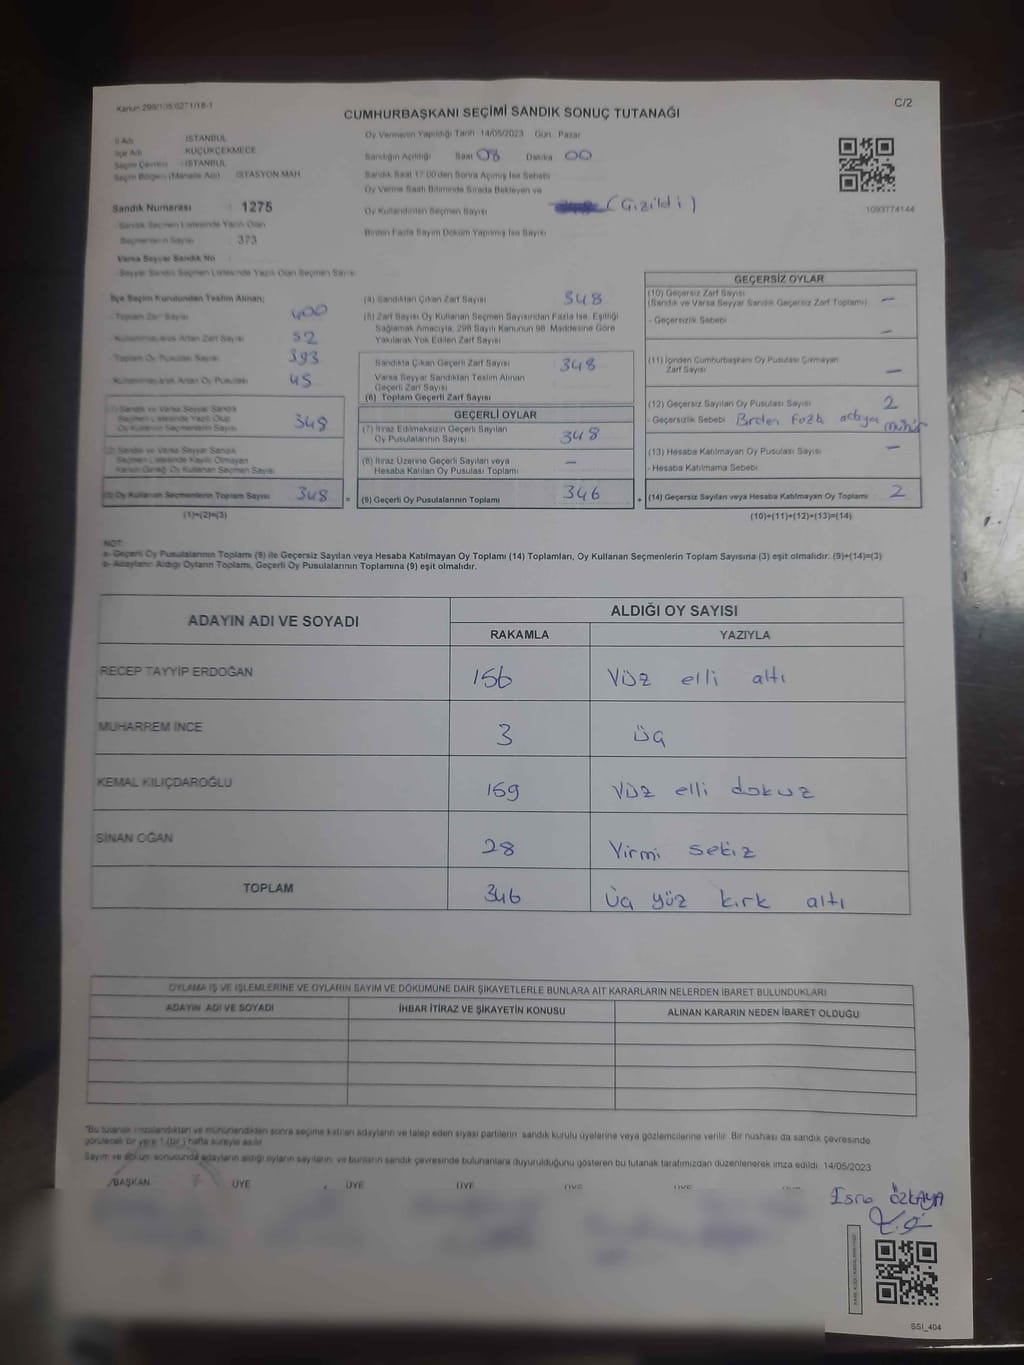 Kanun 298/105,6271/18-1
C/2
CUMHURBAŞKANI SEÇİMİ SANDIK SONUÇ TUTANAĞI
İl Adı : İSTANBUL
İlçe Adı : KÜÇÜKÇEKMECE
Seçim Çevresi : İSTANBUL
Seçim Bölgesi (Mahalle Adı) : İSTASYON MAH
Sandık Numarası : 1275
- Sandık Seçmen Listesinde Yazılı Olan
Seçmenlerin Sayısı : 373
Varsa Seyyar Sandık No :
- Seyyar Sandık Seçmen Listesinde Yazılı Olan Seçmen Sayısı
Oy Vermenin Yapıldığı Tarih : 14/05/2023 Gün : Pazar
Sandığın Açıldığı Saat 08 Dakika 00
Sandık Saat 17:00'den Sonra Açılmış İse Sebebi
Oy Verme Saati Bitiminde Sırada Bekleyen ve
Oy Kullandırılan Seçmen Sayısı (Çizildi)
Birden Fazla Sayım Döküm Yapılmış İse Sayısı
1093774144
İlçe Seçim Kurulundan Teslim Alınan;
- Toplam Zarf Sayısı 400
- Kullanılmayarak Artan Zarf Sayısı 52
- Toplam Oy Pusulası Sayısı 393
Kullanılmayarak Artan Oy Pusulası 45
(1) Sandık ve Varsa Seyyar Sandık
Seçmen Listesinde Yazılı Olup
Oy Kullanan Seçmenlerin Sayısı 348
(2) Sandık ve Varsa Seyyar Sandık
Seçmen Listesinde Kayıtlı Olmayan
Kanun Gereği Oy Kullanan Seçmen Sayısı
(3) Oy Kullanan Seçmenlerin Toplam Sayısı 348 =
(1)+(2)=(3)
(4) Sandıktan Çıkan Zarf Sayısı 348
(5) Zarf Sayısı Oy Kullanan Seçmen Sayısından Fazla İse, Eşitliği
Sağlamak Amacıyla, 298 Sayılı Kanunun 98. Maddesine Göre
Yakılarak Yok Edilen Zarf Sayısı
Sandıkta Çıkan Geçerli Zarf Sayısı 348
Varsa Seyyar Sandıktan Teslim Alınan
Geçerli Zarf Sayısı
(6) Toplam Geçerli Zarf Sayısı
GEÇERLİ OYLAR
(7) İtiraz Edilmeksizin Geçerli Sayılan
Oy Pusulalarının Sayısı 348
(8) İtiraz Üzerine Geçerli Sayılan veya
Hesaba Katılan Oy Pusulası Toplamı —
(9) Geçerli Oy Pusulalarının Toplamı 346 +
GEÇERSİZ OYLAR
(10) Geçersiz Zarf Sayısı
(Sandık ve Varsa Seyyar Sandık Geçersiz Zarf Toplamı) —
- Geçersizlik Sebebi —
(11) İçinden Cumhurbaşkanı Oy Pusulası Çıkmayan
Zarf Sayısı —
(12) Geçersiz Sayılan Oy Pusulası Sayısı 2
- Geçersizlik Sebebi Birden fazla adaya mühür
(13) Hesaba Katılmayan Oy Pusulası Sayısı —
- Hesaba Katılmama Sebebi
(14) Geçersiz Sayılan veya Hesaba Katılmayan Oy Toplamı 2
(10)+(11)+(12)+(13)=(14)
NOT:
a- Geçerli Oy Pusulalarının Toplamı (9) ile Geçersiz Sayılan veya Hesaba Katılmayan Oy Toplamı (14) Toplamları, Oy Kullanan Seçmenlerin Toplam Sayısına (3) eşit olmalıdır. (9)+(14)=(3)
b- Adayların Aldığı Oyların Toplamı, Geçerli Oy Pusulalarının Toplamına (9) eşit olmalıdır.
ADAYIN ADI VE SOYADI ALDIĞI OY SAYISI
RAKAMLA YAZIYLA
RECEP TAYYİP ERDOĞAN 156 Yüz elli altı
MUHARREM İNCE 3 üç
KEMAL KILIÇDAROĞLU 159 Yüz elli dokuz
SİNAN OĞAN 28 Yirmi sekiz
TOPLAM 346 Üç yüz kırk altı
OYLAMA İŞ VE İŞLEMLERİNE VE OYLARIN SAYIM VE DÖKÜMÜNE DAİR ŞİKAYETLERLE BUNLARA AİT KARARLARIN NELERDEN İBARET BULUNDUKLARI
ADAYIN ADI VE SOYADI İHBAR İTİRAZ VE ŞİKAYETİN KONUSU ALINAN KARARIN NEDEN İBARET OLDUĞU
"Bu tutanak imzalandıktan ve mühürlendikten sonra seçime katılan adayların ve talep eden siyasi partilerin sandık kurulu üyelerine veya gözlemcilerine verilir. Bir nüshası da sandık çevresinde
görülecek bir yere 1 (bir) hafta süreyle asılır.
Sayım ve döküm sonucunda adayların aldığı oyların sayılarını ve bunların sandık çevresinde bulunanlara duyurulduğunu gösteren bu tutanak tarafımızdan düzenlenerek imza edildi. 14/05/2023
BAŞKAN ÜYE ÜYE ÜYE ÜYE ÜYE
Esra ÖZKAYA
SSI_404